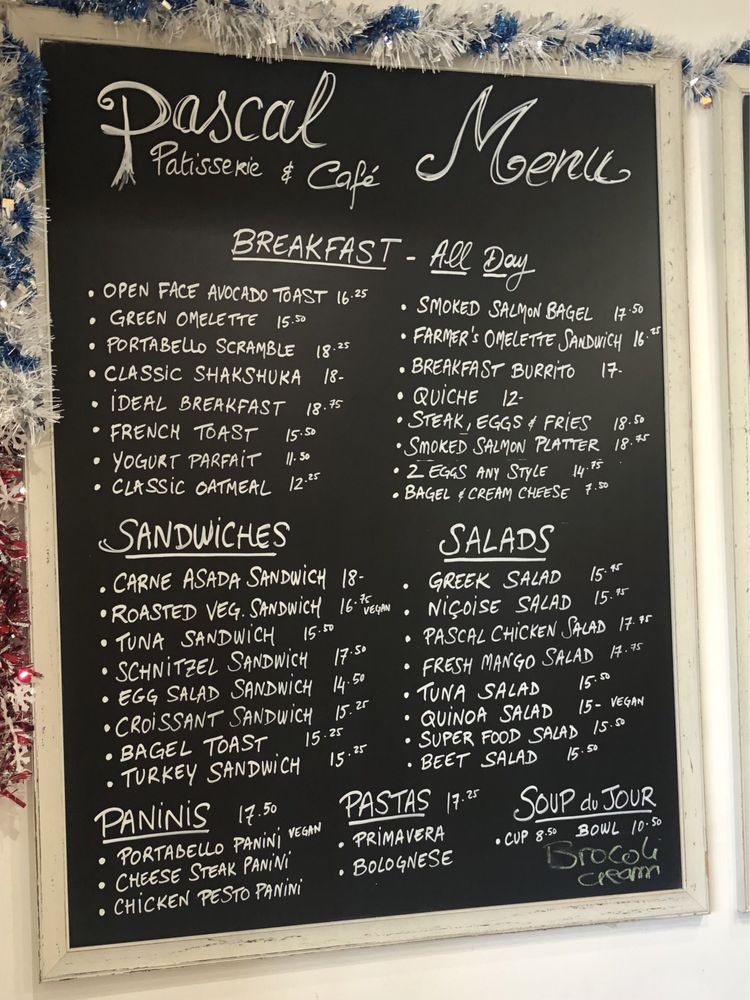 Pascal Menu
Patisserie & Café
BREAKFAST - All Day
• OPEN FACE AVOCADO TOAST 16.25
• GREEN OMELETTE 15.50
• PORTABELLO SCRAMBLE 18.25
• CLASSIC SHAKSHUKA 18-
• IDEAL BREAKFAST 18.75
• FRENCH TOAST 15.50
• YOGURT PARFAIT 11.50
• CLASSIC OATMEAL 12.25
• SMOKED SALMON BAGEL 17.50
• FARMER'S OMELETTE SANDWICH 16.25
• BREAKFAST BURRITO 17-
• QUICHE 12-
• STEAK, EGGS & FRIES 18.50
• SMOKED SALMON PLATTER 18.75
• 2 EGGS ANY STYLE 14.75
• BAGEL & CREAM CHEESE 7.50
SANDWICHES
• CARNE ASADA SANDWICH 18-
• ROASTED VEG. SANDWICH 16.75 VEGAN
• TUNA SANDWICH 15.50
• SCHNITZEL SANDWICH 17.50
• EGG SALAD SANDWICH 14.50
• CROISSANT SANDWICH 15.25
• BAGEL TOAST 15.25
• TURKEY SANDWICH 15.25
SALADS
• GREEK SALAD 15.75
• NIÇOISE SALAD 15.75
• PASCAL CHICKEN SALAD 17.75
• FRESH MANGO SALAD 17.75
• TUNA SALAD 15.50
• QUINOA SALAD 15- VEGAN
• SUPER FOOD SALAD 15.50
• BEET SALAD 15.50
PANINIS 17.50
• PORTABELLO PANINI VEGAN
• CHEESE STEAK PANINI
• CHICKEN PESTO PANINI
PASTAS 17.25
• PRIMAVERA
• BOLOGNESE
SOUP du JOUR
• CUP 8.50 BOWL 10.50
Brocoli
cream